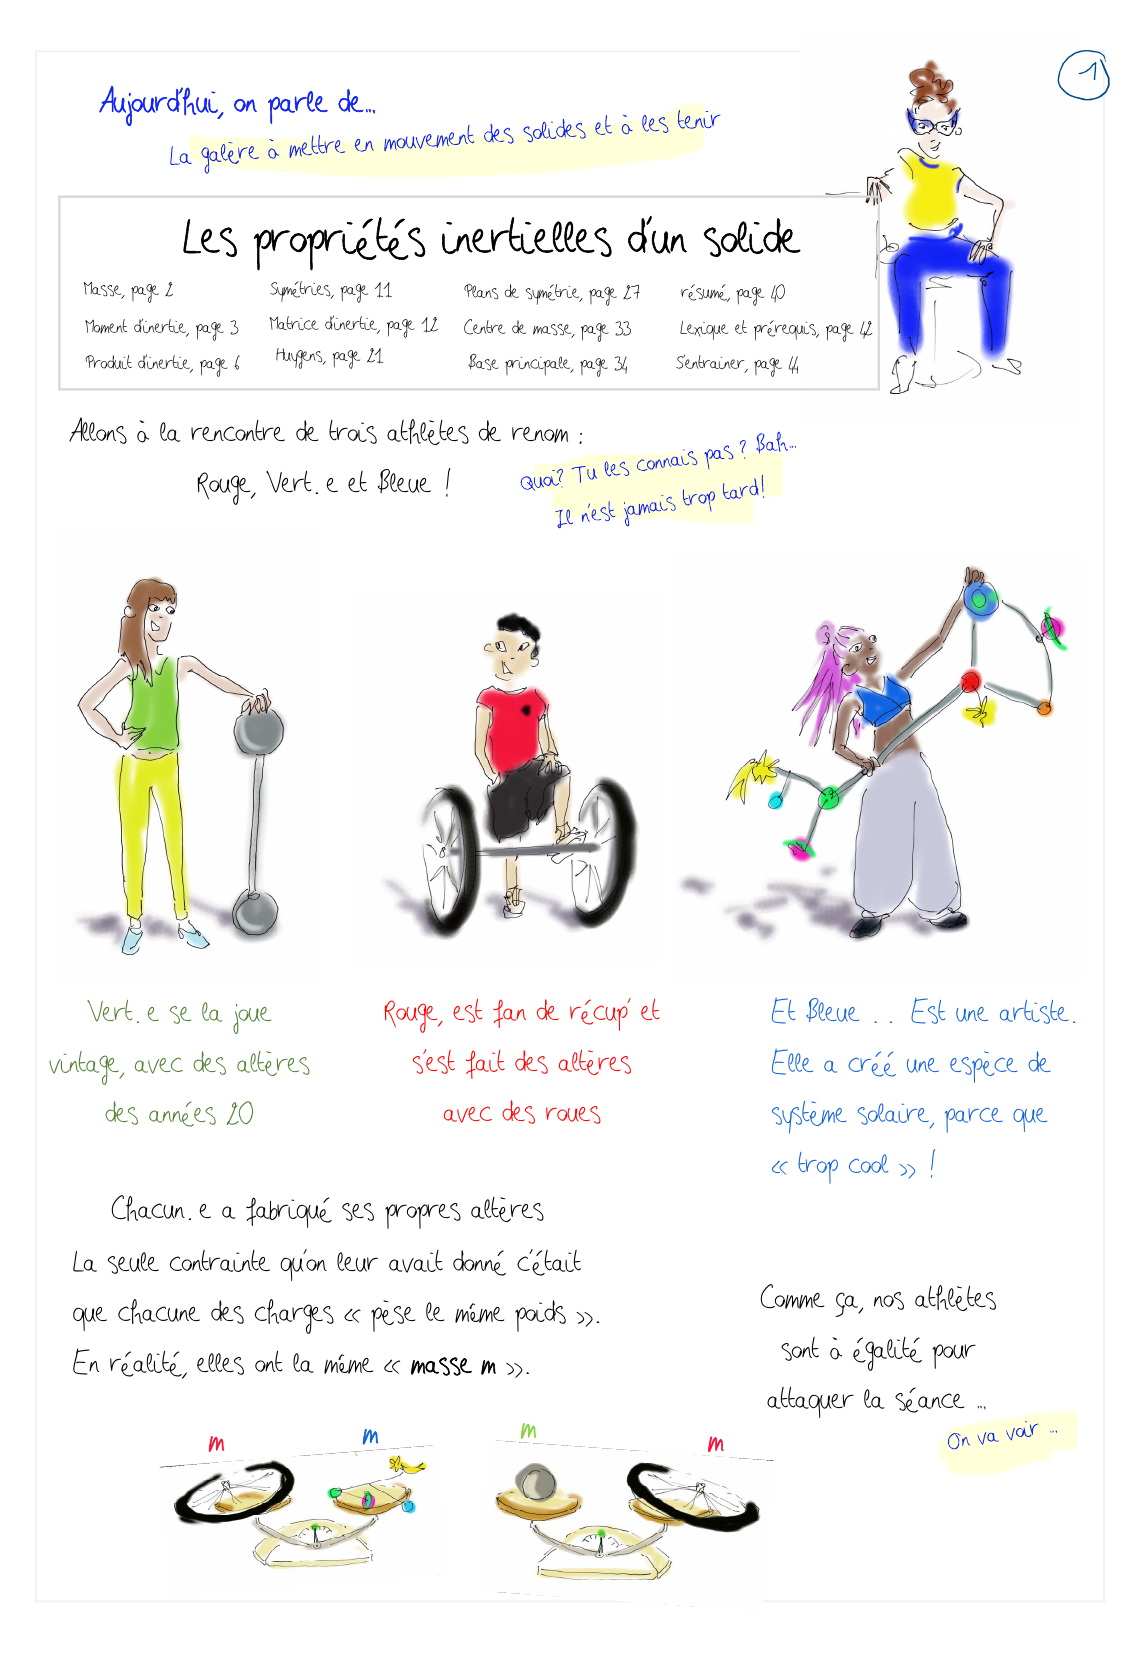 1
Aujourd'hui, on parle de...
La galère à mettre en mouvement des solides et à les tenir
Les propriétés inertielles d'un solide
Masse, page 2
Symétries, page 11
Plans de symétrie, page 27
résumé, page 40
Moment d'inertie, page 3
Matrice d'inertie, page 12
Centre de masse, page 33
Lexique et prérequis, page 42
Produit d'inertie, page 6
Huygens, page 21
Base principale, page 34
S'entrainer, page 44
Allons à la rencontre de trois athlètes de renom :
Rouge, Vert.e et Bleue !
Quoi? Tu les connais pas ? Bah...
Il n'est jamais trop tard!
Vert.e se la joue
vintage, avec des altères
des années 20
Rouge, est fan de récup' et
s'est fait des altères
avec des roues
Et Bleue . . Est une artiste.
Elle a créé une espèce de
système solaire, parce que
« trop cool » !
Chacun.e a fabriqué ses propres altères
La seule contrainte qu'on leur avait donné c'était
que chacune des charges « pèse le même poids ».
En réalité, elles ont la même « masse m ».
Comme ça, nos athlètes
sont à égalité pour
attaquer la séance ...
On va voir ...
m
m
m
m